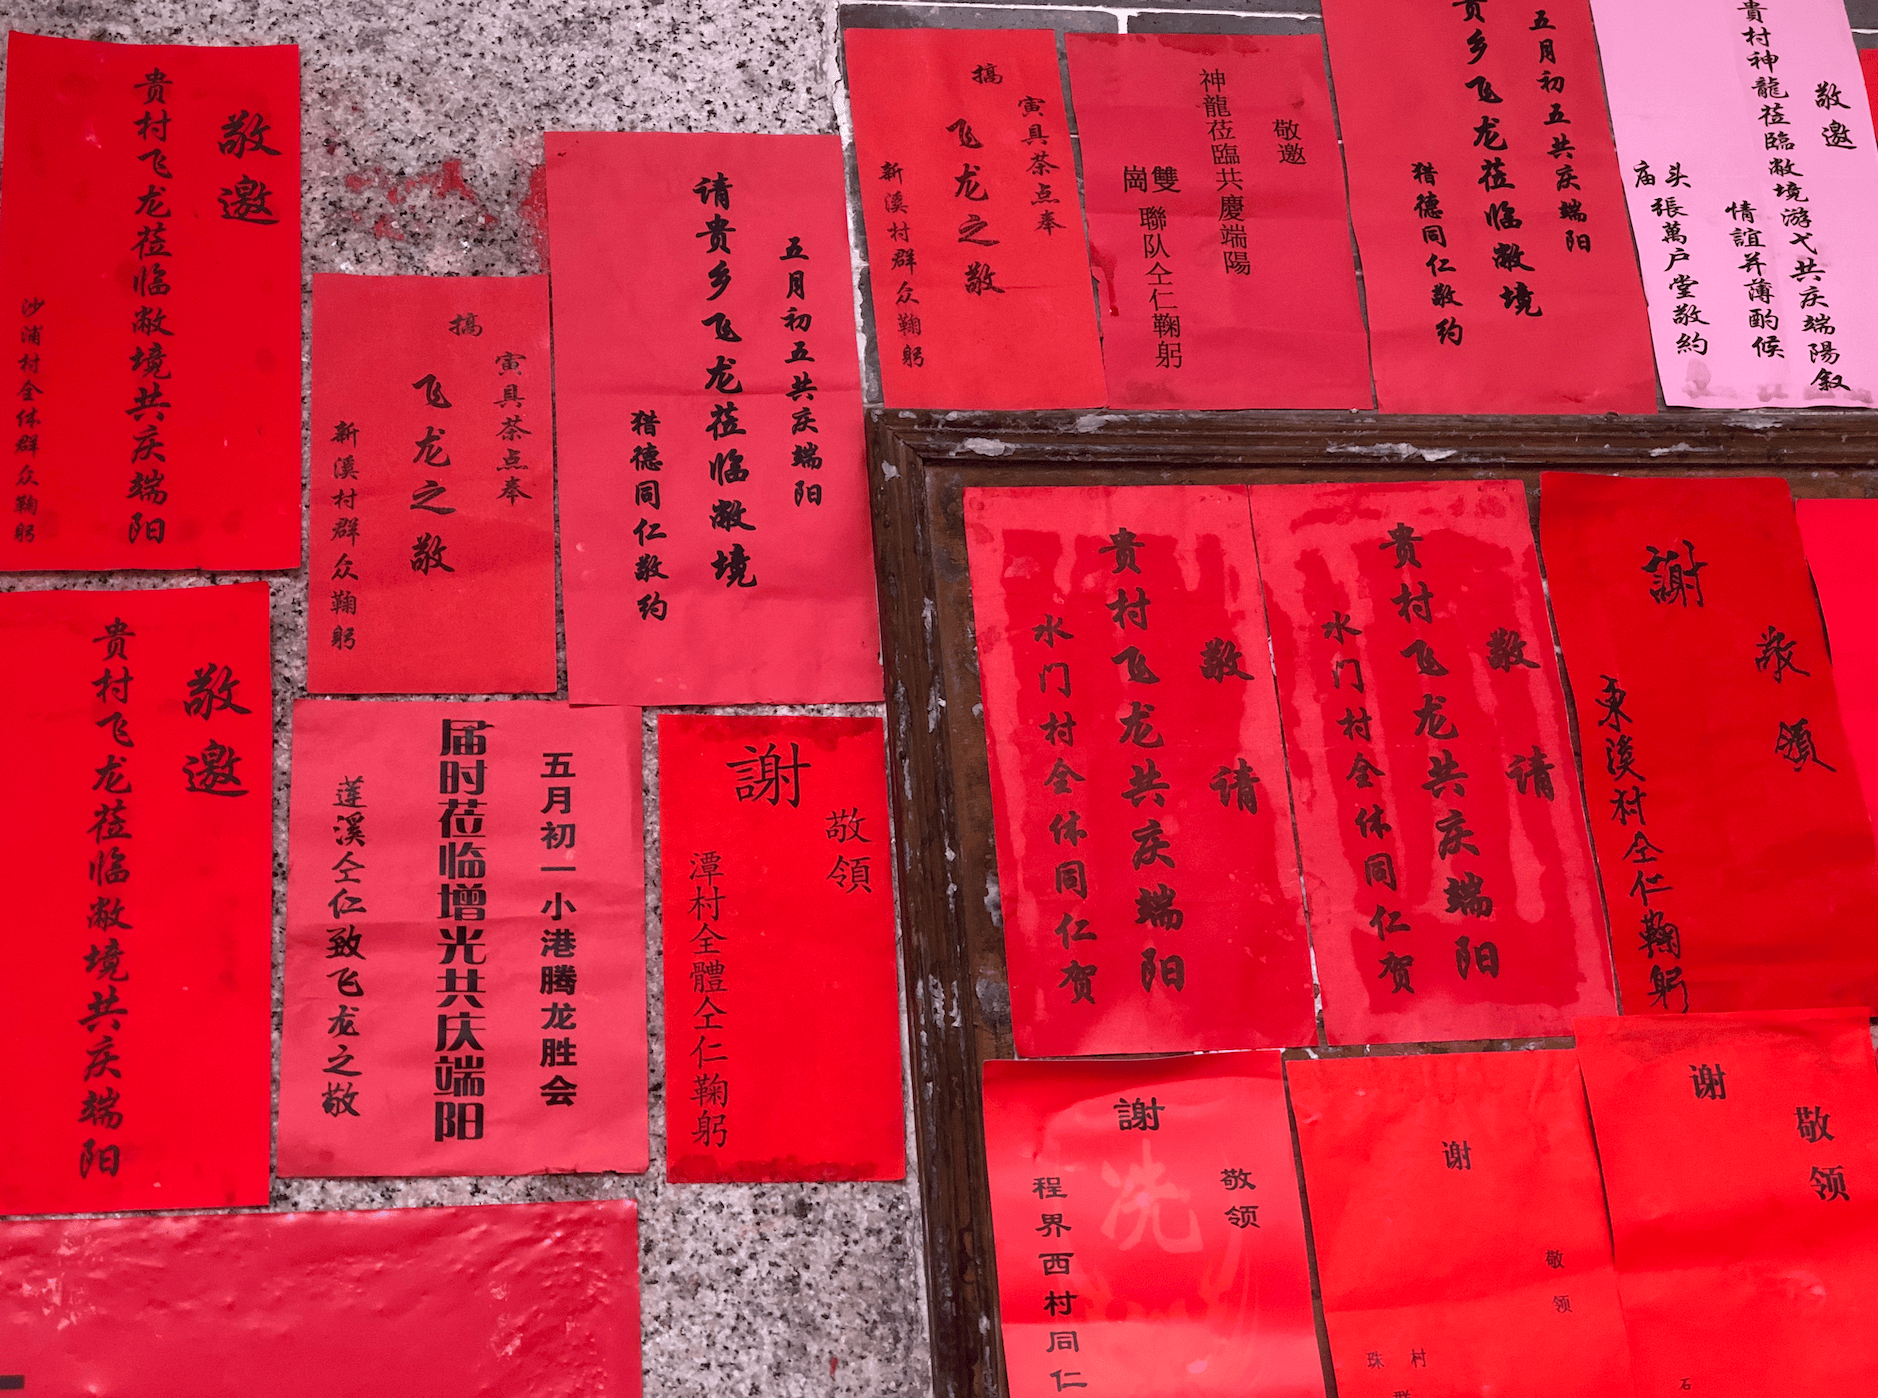 敬邀
贵村飞龙莅临敝境共庆端阳
沙浦村全体群众鞠躬
敬邀
贵村飞龙莅临敝境共庆端阳
寅具茶点奉
搞
飞龙之敬
新溪村群众鞠躬
五月初五共庆端阳
请贵乡飞龙莅临敝境
猎德同仁敬约
五月初一小港腾龙胜会
届时莅临增光共庆端阳
莲溪仝仁致飞龙之敬
敬領
謝
潭村全體仝仁鞠躬
寅具茶点奉
搞
飞龙之敬
新溪村群众鞠躬
敬邀
神龍莅臨共慶端陽
雙崗聯队仝仁鞠躬
五月初五共庆端阳
贵乡飞龙莅临敝境
猎德同仁敬约
敬邀
貴村神龍莅臨敝境游弋共庆端陽叙
情誼并薄酌候
头庙張萬户堂敬約
敬请
贵村飞龙共庆端阳
水门村全体同仁贺
敬请
贵村飞龙共庆端阳
水门村全体同仁贺
敬領
謝
東溪村仝仁鞠躬
敬领
謝
程界西村同仁
敬领
谢
珠村
敬领
谢
石